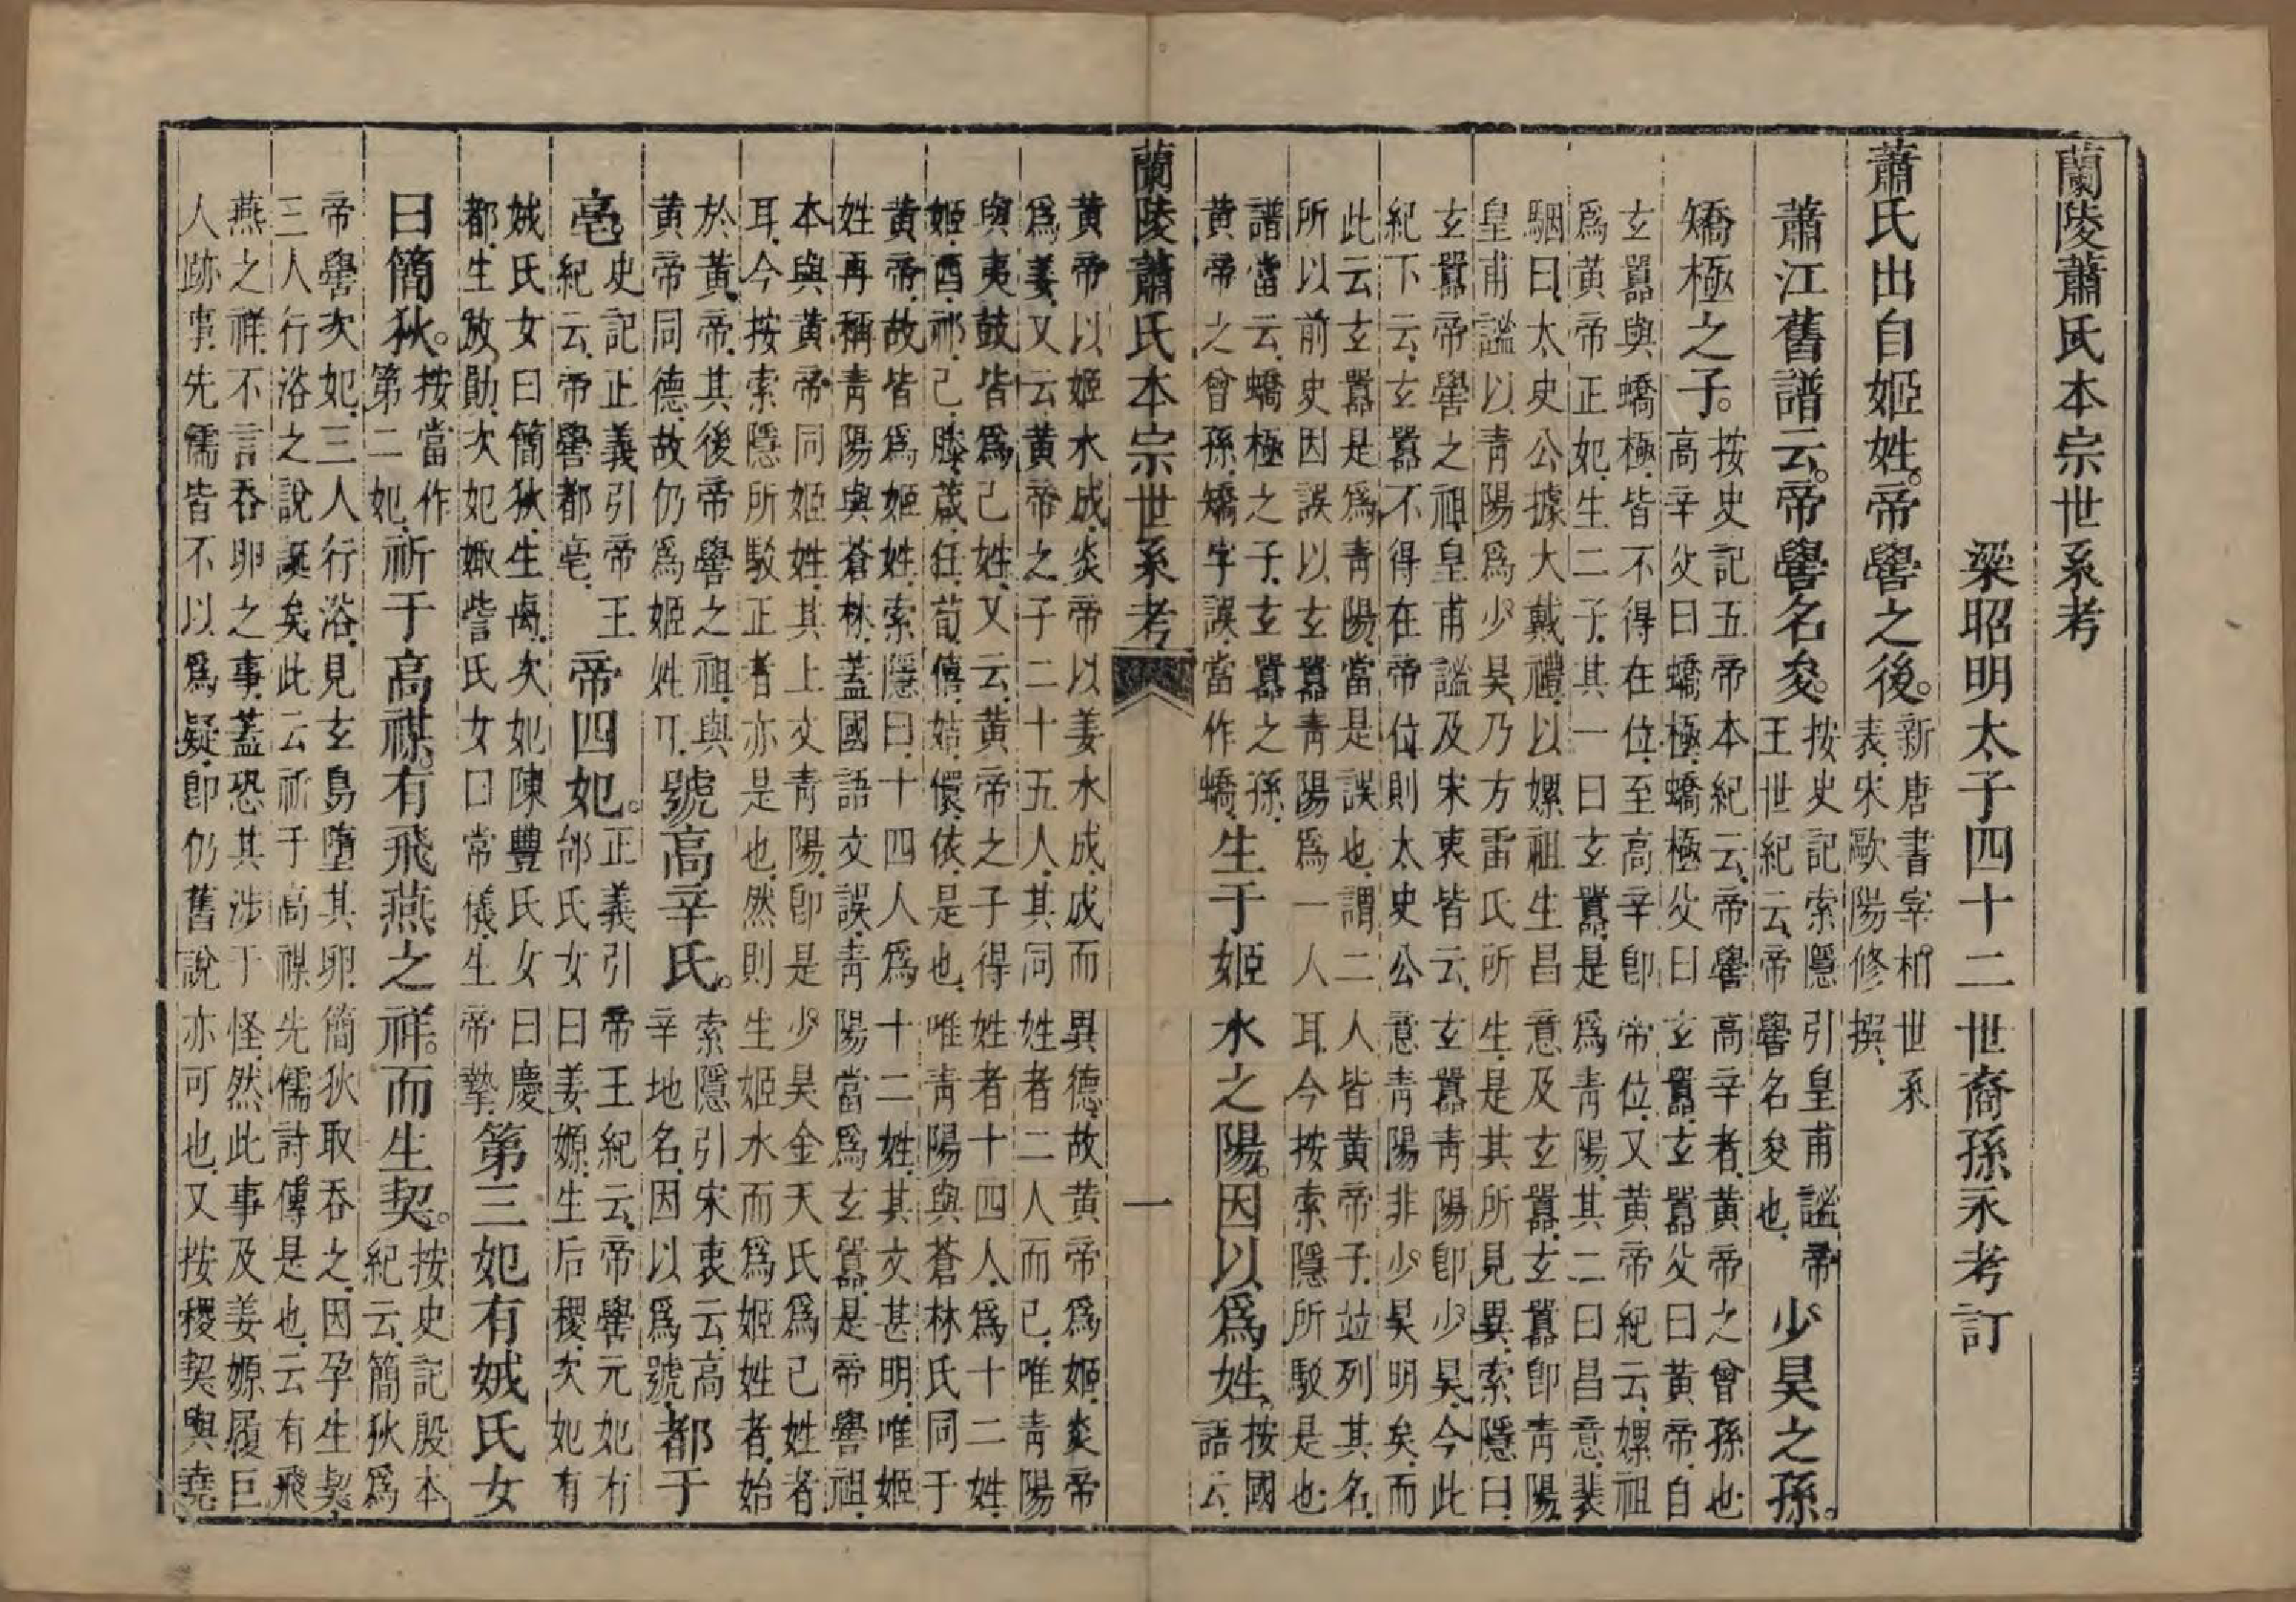 蘭陵蕭氏本宗世系考
梁昭明太子四十二世裔孫永考訂
蕭氏出自姬姓帝嚳之後新唐書宰相世系
表宋歐陽修撰
蕭江舊譜云帝嚳名夋按史記索隱引皇甫謐帝
王世紀云帝嚳名夋也少昊之孫
矯極之子按史記五帝本紀云帝嚳高辛者黄帝之曾孫也
高辛父曰蟜極蟜極父曰玄囂玄囂父曰黄帝自
玄囂與蟜極皆不得在位至高辛卽帝位又黄帝紀云嫘祖
爲黄帝正妃生二子其一曰玄囂是爲青陽其二曰昌意裴
駰曰太史公據大戴禮以嫘祖生昌意及玄囂玄囂卽青陽
皇甫謐以青陽爲少昊乃方雷氏所生是其所見異索隱曰
玄囂帝嚳之祖皇甫謐及宋衷皆云玄囂青陽卽少昊今此
紀下云玄囂不得在帝位則太史公意青陽非少昊明矣而
此云玄囂是爲青陽當是誤也謂二人皆黄帝子竝列其名
所以前史因誤以玄囂青陽爲一人耳今按索隱所駁是也
譜當云蟜極之子玄囂之孫
黄帝之曾孫矯字誤當作蟜生于姬水之陽因以爲姓按國
語云
蘭陵蕭氏本宗世系考
一
黄帝以姬水成炎帝以姜水成成而異德故黄帝爲姬炎帝
爲姜又云黄帝之子二十五人其同姓者二人而已唯青陽
與夷鼓皆爲己姓又云黄帝之子得姓者十四人爲十二姓
姬酉祁己滕葴任荀僖姞儇依是也唯青陽與蒼林氏同于
黄帝故皆爲姬姓索隱曰十四人爲十二姓其文甚明唯姬
姓再稱青陽與蒼林蓋國語文誤青陽當爲玄囂是帝嚳祖
本與黄帝同姬姓其上文青陽卽是少昊金天氏爲己姓者
耳今按索隱所駁正者亦是也然則生姬水而爲姬姓者始
於黄帝其後帝嚳之祖與
黄帝同德故仍爲姬姓耳號高辛氏索隱引宋衷云高
辛地名因以爲號都于
亳史記正義引帝王
紀云帝嚳都亳帝四妃正義引帝王紀云帝嚳元妃有
邰氏女曰姜嫄生后稷次妃有
娀氏女曰簡狄生卨次妃陳豐氏女曰慶
都生放勛次妃娵訾氏女曰常儀生帝摯第三妃有娀氏女
曰簡狄按當作
第二妃祈于高禖有飛燕之祥而生契按史記殷本
紀云簡狄爲
帝嚳次妃三人行浴見玄鳥墮其卵簡狄取吞之因孕生契
三人行浴之說誕矣此云祈于高禖先儒詩傳是也云有飛
燕之祥不言吞卵之事蓋恐其涉于怪然此事及姜嫄履巨
人跡事先儒皆不以爲疑卽仍舊說亦可也又按稷契與堯